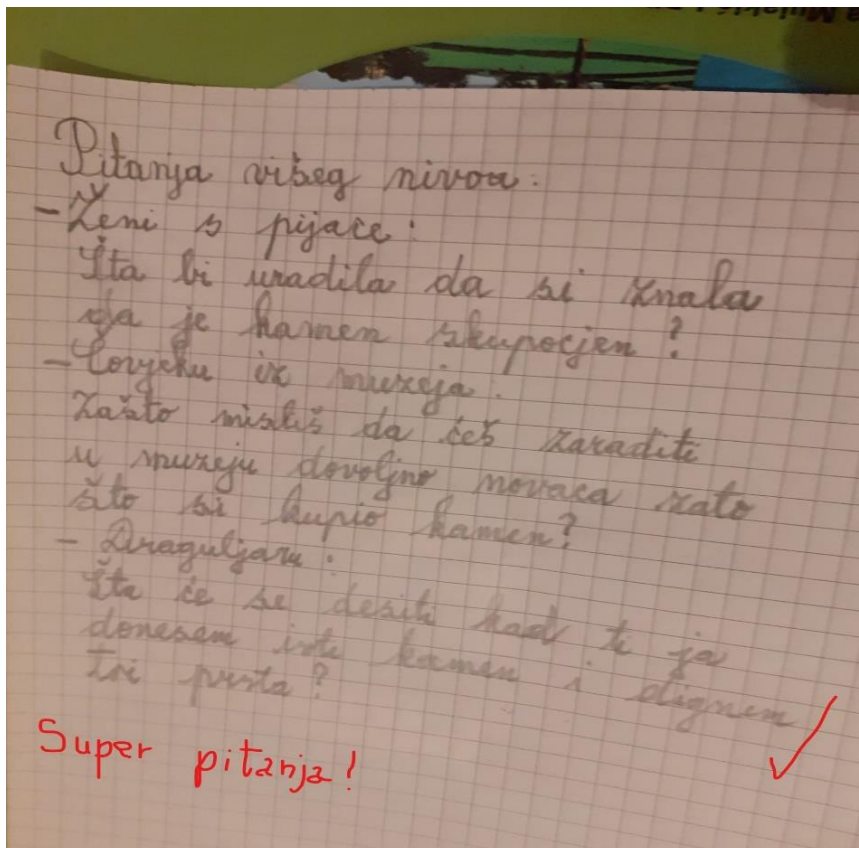 Pitanja višeg nivoa:
- Ženi s pijace:
Šta bi uradila da si znala
da je kamen skupocjen?
- Čovjeku iz muzeja:
Zašto misliš da ćeš zaraditi
u muzeju dovoljno novaca zato
što si kupio kamen?
- Draguljaru:
Šta će se desiti kad ti ja
donesem isti kamen i dignem
tri prsta?
Super pitanja!